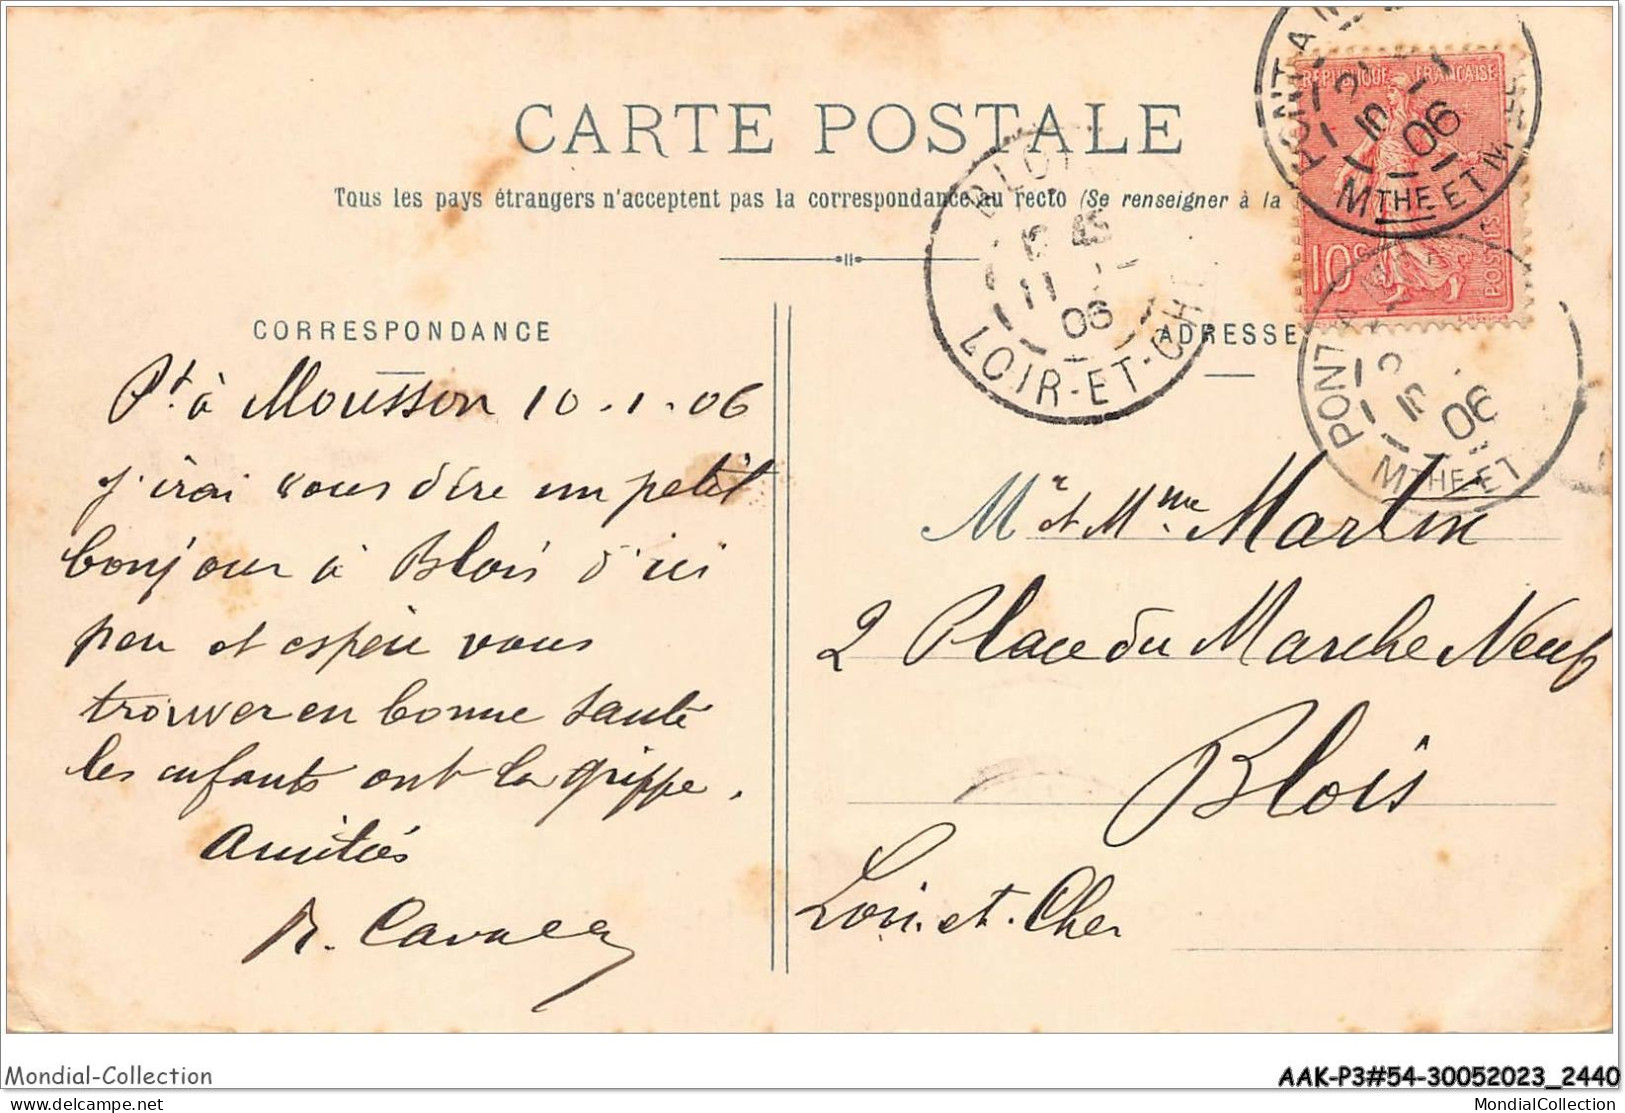 CARTE POSTALE
Tous les pays étrangers n'acceptent pas la correspondance au recto (Se renseigner à la
RÉPUBLIQUE FRANÇAISE
10c
POSTES
PONT-A-M
10 06
MTHE ET M
BLOIS
11 06
LOIR-ET-CHE
PONT-A-M
10 06
MTHE-ET
CORRESPONDANCE
Pt. à Mousson 10.1.06
j'irai vous dire un petit
bonjour à Blois d'ici
peu et espère vous
trouver en bonne santé
les enfants ont la grippe.
Amitiés
ADRESSE
Mr et Mme Martin
2 Place du Marche Neuf
Blois
Loir. et. Cher
Mondial-Collection
AAK-P3#54-30052023_2440
delcampe.net
MondialCollection